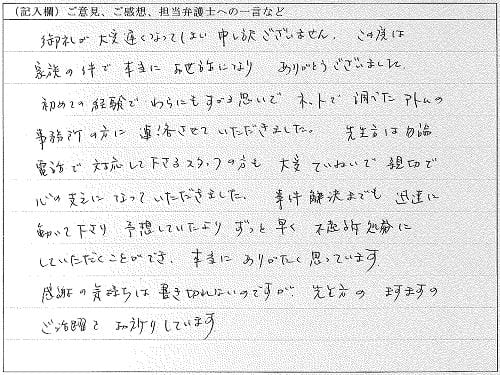 (記入欄)ご意見、ご感想、担当弁護士への一言など
御礼が大変遅くなってしまい申し訳ございません。この度は
家族の件で本当にお世話になり ありがとうございました。
初めての経験でわらにもすがる思いで ネットで調べたアトムの
事務所の方に連絡させていただきました。 先生方は勿論
電話で対応して下さるスタッフの方も 大変ていねいで親切で
心の支えになっていただきました。 事件解決までも迅速に
動いて下さり 予想していたよりずっと早く 不起訴処分に
していただくことができ、本当にありがたく思っています
感謝の気持ちは書き切れないのですが、先生方のますますの
ご活躍をお祈りしています